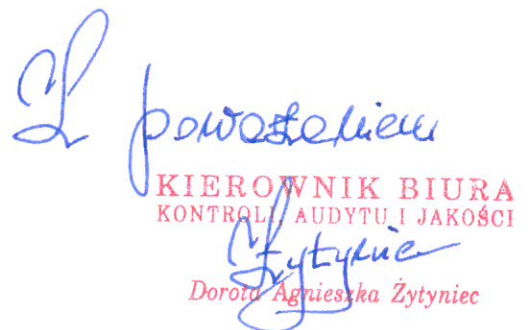 Z poważaniem
KIEROWNIK BIURA
KONTROLI, AUDYTU I JAKOŚCI
Żytyniec
Dorota Agnieszka Żytyniec